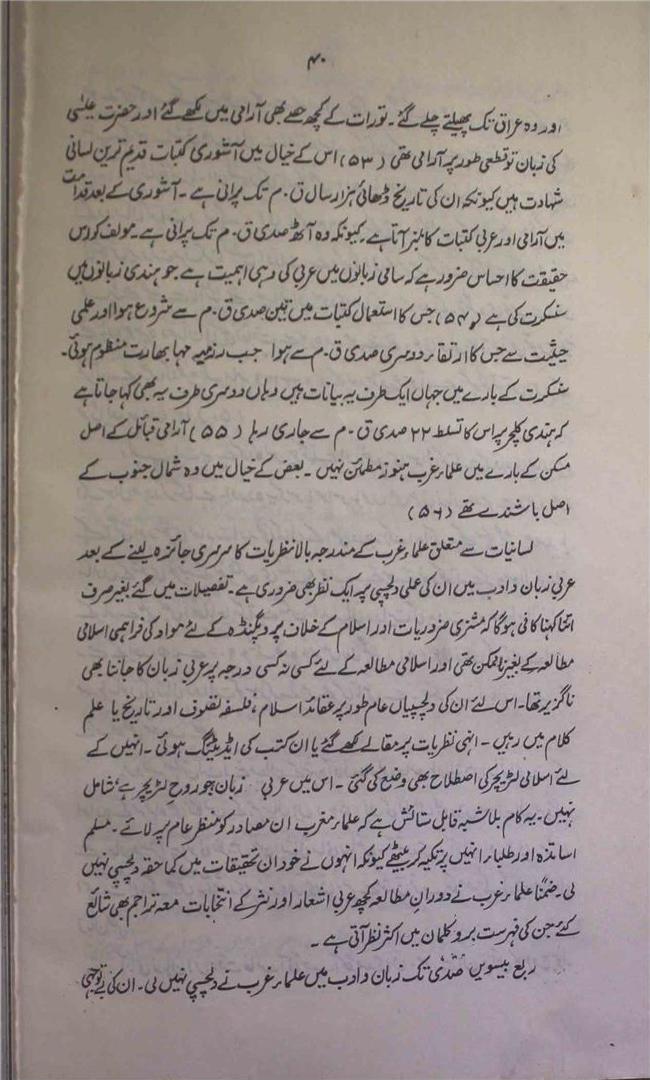 ۴۰
اور وہ عراق تک پھیلتے چلے گئے۔ تورات کے کچھ حصے بھی آرامی میں لکھے گئے اور حضرت عیسٰی
کی زبان تو قطعی طور پر آرامی تھی (۵۳) اس کے خیال میں آشوری کتبات قدیم ترین لسانی
شہادت ہیں کیونکہ ان کی تاریخ ڈھائی ہزار سال ق۔م تک پرانی ہے۔ آشوری کے بعد قدامت
میں آرامی اور عربی کتبات کا نمبر آتا ہے کیونکہ وہ آٹھ صدی ق۔م تک پرانی ہے۔ مولف کو اس
حقیقت کا احساس ضرور ہے کہ سامی زبانوں میں عربی کی وہی اہمیت ہے جو ہندی زبانوں میں
سنسکرت کی ہے (۵۴) جس کا استعمال کتبات میں تین صدی ق۔م سے شروع ہوا اور علمی
حیثیت سے جس کا ارتقاء دوسری صدی ق۔م سے ہوا جب رزمیہ مہا بھارت منظوم ہوئی۔
سنسکرت کے بارے میں جہاں ایک طرف یہ بیانات ہیں وہاں دوسری طرف یہ بھی کہا جاتا ہے
کہ ہندی کلچر پر اس کا تسلط ۲۲ صدی ق۔م سے جاری رہا (۵۵) آرامی قبائل کے اصل
مسکن کے بارے میں علماء غرب ہنوز مطمئن نہیں۔ بعض کے خیال میں وہ شمال جنوب کے
اصل باشندے تھے (۵۶)
لسانیات سے متعلق علماء غرب کے مندرجہ بالا نظریات کا سرسری جائزہ لینے کے بعد
عربی زبان و ادب میں ان کی علمی دلچسپی پر ایک نظر بھی ضروری ہے۔ تفصیلات میں گئے بغیر صرف
اتنا کہنا کافی ہوگا کہ مشنری ضروریات اور اسلام کے خلاف پروپگنڈہ کے لئے مواد کی فراہمی اسلامی
مطالعہ کے بغیر ناممکن تھی اور اسلامی مطالعہ کے لئے کسی نہ کسی درجہ پر عربی زبان کا جاننا بھی
ناگزیر تھا۔ اس لئے ان کی دلچسپیاں عام طور پر عقائد اسلام، فلسفہ تصوف اور تاریخ یا علم
کلام میں رہیں۔ انہی نظریات پر مقالے لکھے گئے یا ان کتب کی ایڈیٹنگ ہوئی۔ انہیں کے
لئے اسلامی لٹریچر کی اصطلاح بھی وضع کی گئی۔ اس میں عربی زبان جو روح لٹریچر ہے، شامل
نہیں۔ یہ کام بلاشبہ قابل ستائش ہے کہ علماء مغرب ان مصادر کو منظر عام پر لائے۔ مسلم
اساتذہ اور طلباء انہیں پر تکیہ کر بیٹھے کیونکہ انہوں نے خود ان تحقیقات میں کماحقہ دلچسپی نہیں
لی۔ ضمنًا علماء غرب نے دوران مطالعہ کچھ عربی اشعار اور نثر کے انتخابات معہ تراجم بھی شائع
کئے جن کی فہرست بروکلمان میں اکثر نظر آتی ہے۔
ربع بیسویں صدی تک زبان و ادب میں علماء غرب نے دلچسپی نہیں لی۔ ان کی بے توجہی